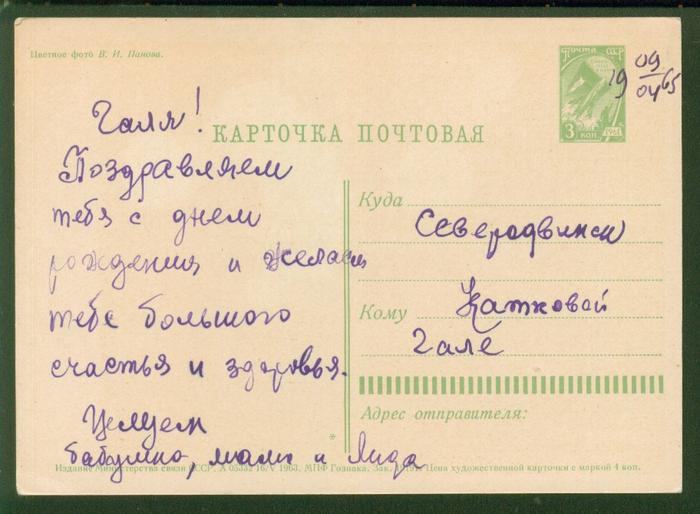 Цветное фото В. И. Панова.
ПОЧТА СССР
3 КОП. 1961
19 09/04 65
КАРТОЧКА ПОЧТОВАЯ
Галя!
Поздравляем
тебя с днем
рождения и желаем
тебе большого
счастья и здоровья.
Целуем
бабушка, мама и Лида
Куда Северодвинск
Кому Катковой
Гале
Адрес отправителя:
Издание Министерства связи СССР. А 05332 16/V 1963. МПФ Гознака. Зак. Цена художественной карточки с маркой 4 коп.